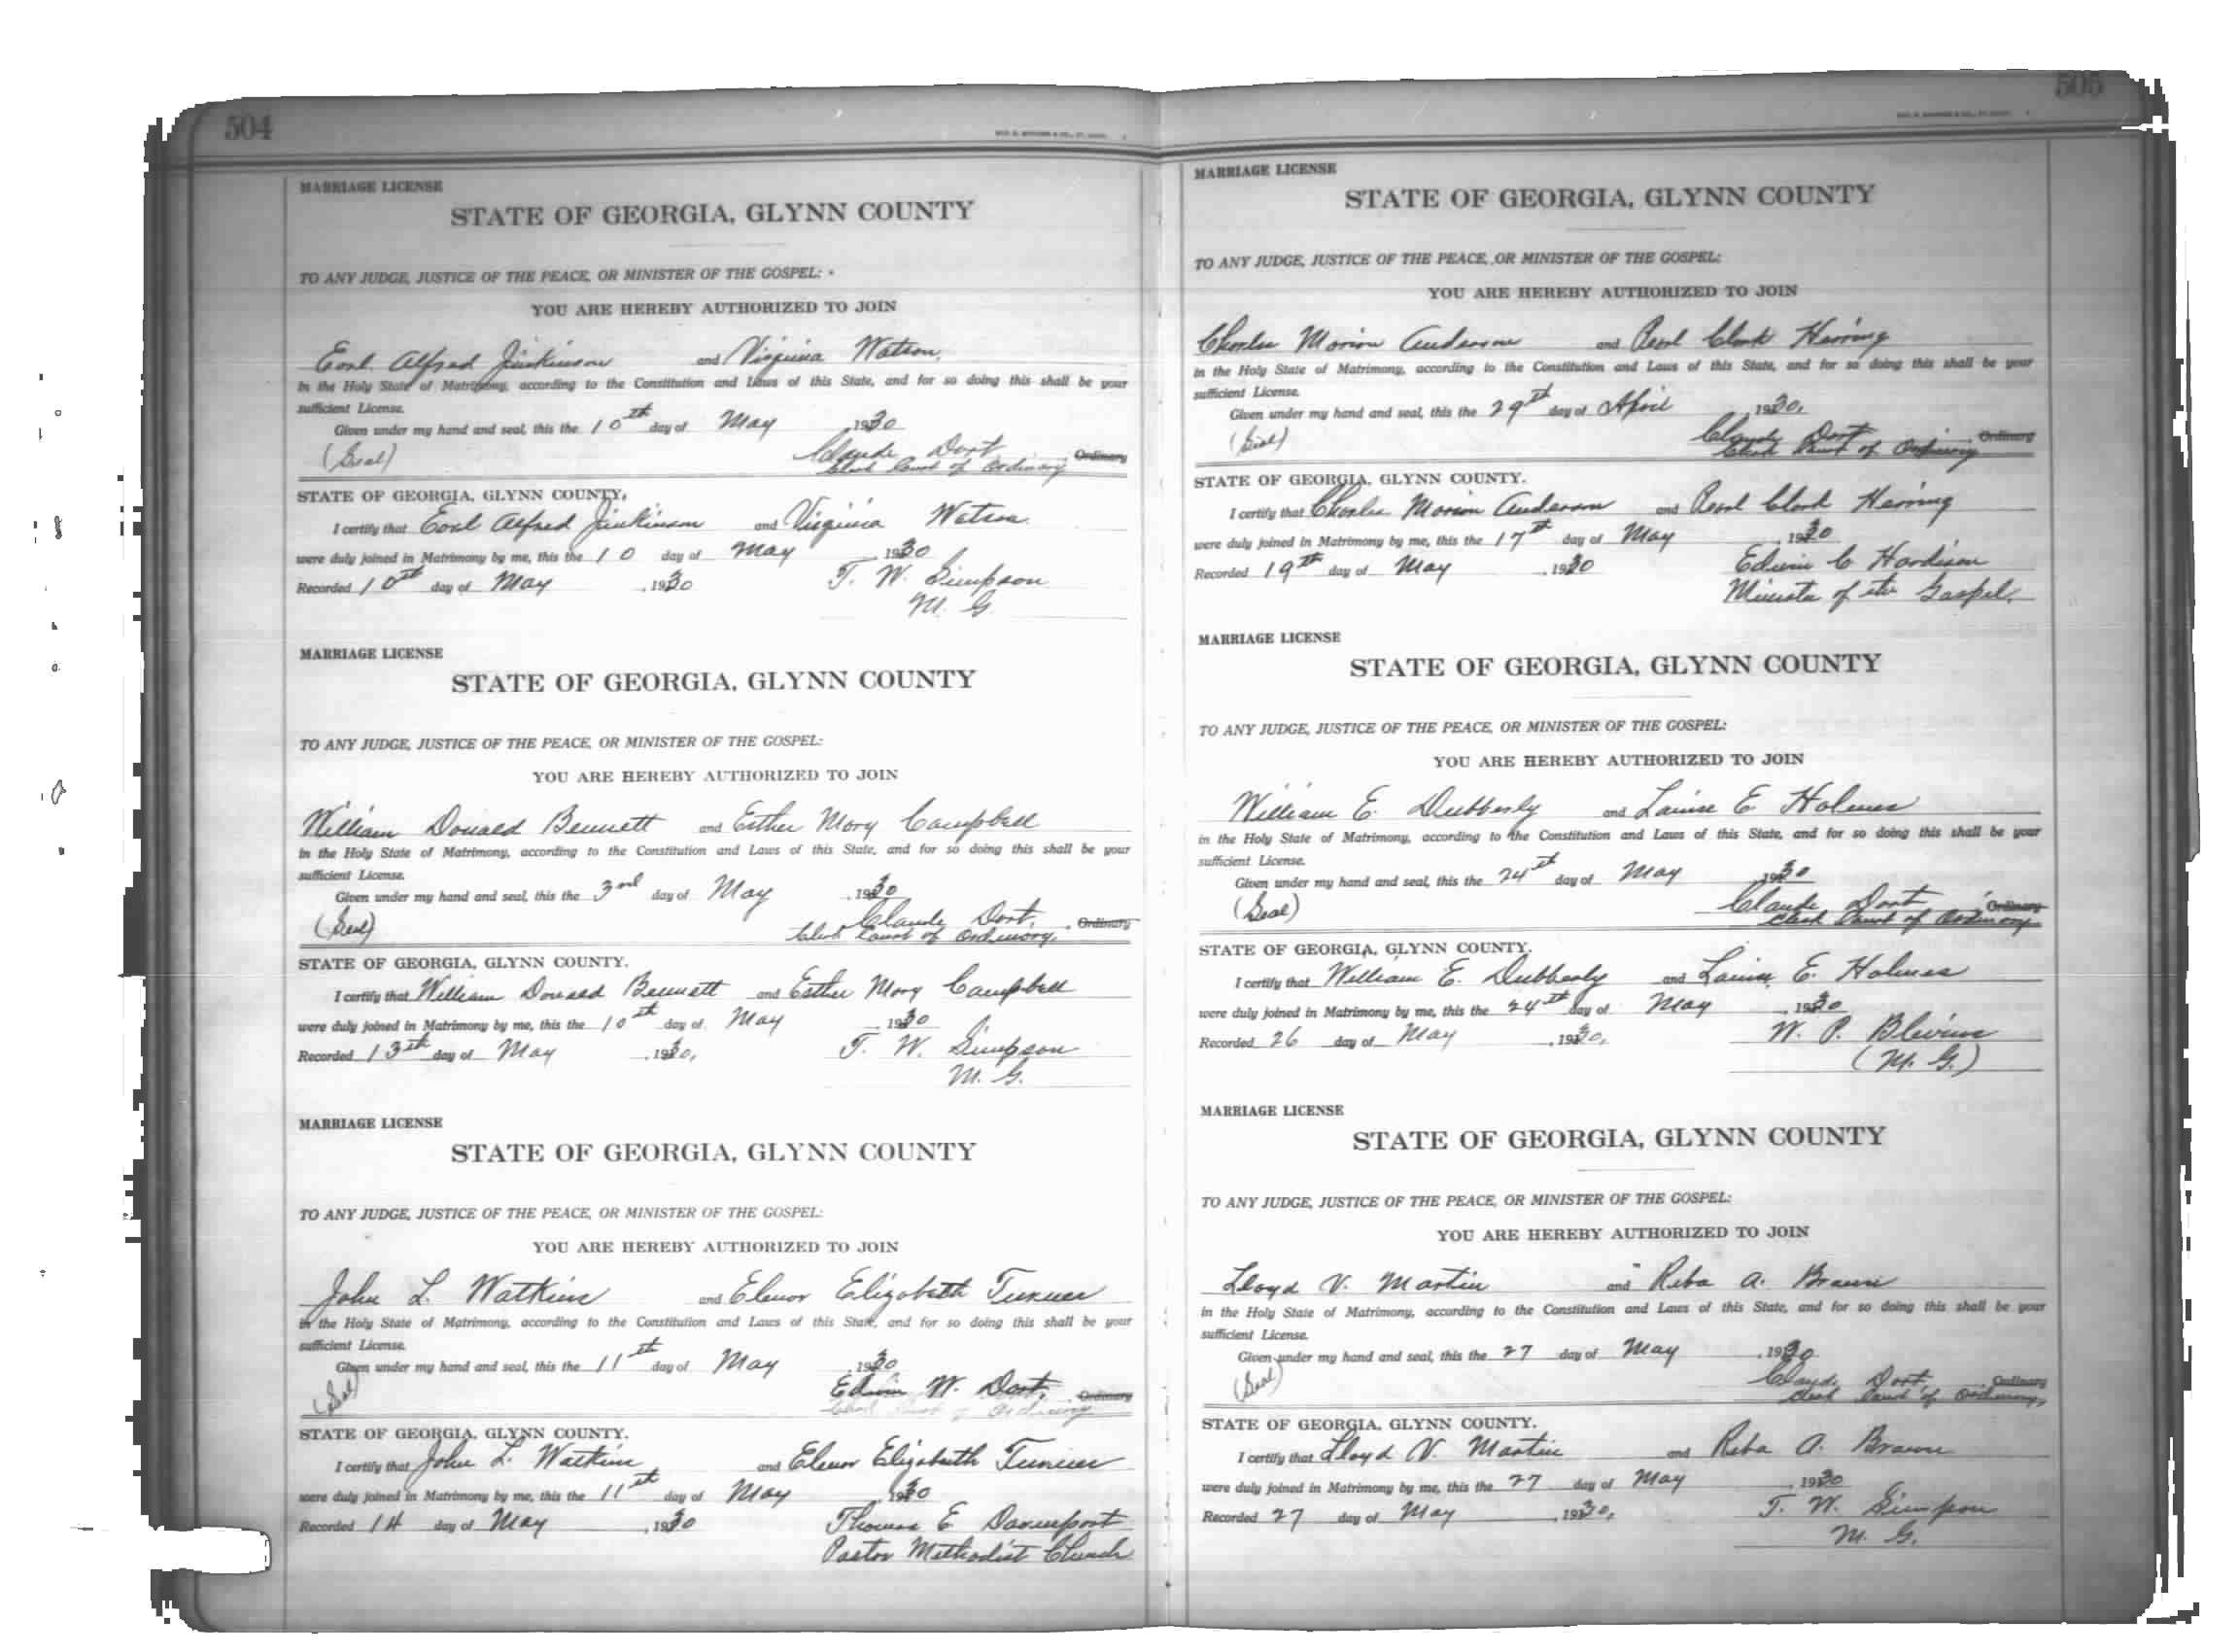 504
MARRIAGE LICENSE
STATE OF GEORGIA, GLYNN COUNTY
TO ANY JUDGE, JUSTICE OF THE PEACE, OR MINISTER OF THE GOSPEL:
YOU ARE HEREBY AUTHORIZED TO JOIN
Earl Alfred Jinkinson and Virginia Watson,
in the Holy State of Matrimony, according to the Constitution and Laws of this State, and for so doing this shall be your
sufficient License.
Given under my hand and seal, this the 10th day of May , 1930
(Seal) Claude Dart , Ordinary
Clerk Court of Ordinary
STATE OF GEORGIA, GLYNN COUNTY.
I certify that Earl Alfred Jinkinson and Virginia Watson
were duly joined in Matrimony by me, this the 10 day of May , 1930
Recorded 10th day of May , 1930 T. W. Simpson
M. G.
MARRIAGE LICENSE
STATE OF GEORGIA, GLYNN COUNTY
TO ANY JUDGE, JUSTICE OF THE PEACE, OR MINISTER OF THE GOSPEL:
YOU ARE HEREBY AUTHORIZED TO JOIN
William Donald Bennett and Esther Mary Campbell
in the Holy State of Matrimony, according to the Constitution and Laws of this State, and for so doing this shall be your
sufficient License.
Given under my hand and seal, this the 3rd day of May , 1930
(Seal) Claude Dart, Ordinary
Clerk Court of Ordinary.
STATE OF GEORGIA, GLYNN COUNTY.
I certify that William Donald Bennett and Esther Mary Campbell
were duly joined in Matrimony by me, this the 10th day of May , 1930
Recorded 13th day of May , 1930, T. W. Simpson
M. G.
MARRIAGE LICENSE
STATE OF GEORGIA, GLYNN COUNTY
TO ANY JUDGE, JUSTICE OF THE PEACE, OR MINISTER OF THE GOSPEL:
YOU ARE HEREBY AUTHORIZED TO JOIN
John L. Watkins and Elenor Elizabeth Turner
in the Holy State of Matrimony, according to the Constitution and Laws of this State, and for so doing this shall be your
sufficient License.
Given under my hand and seal, this the 11th day of May , 1930
(Seal) Edwin W. Dart, Ordinary
Clerk Court of Ordinary
STATE OF GEORGIA, GLYNN COUNTY.
I certify that John L. Watkins and Elenor Elizabeth Turner
were duly joined in Matrimony by me, this the 11th day of May 1930
Recorded 14 day of May , 1930 Thomas E. Davenport
Pastor Methodist Church
505
MARRIAGE LICENSE
STATE OF GEORGIA, GLYNN COUNTY
TO ANY JUDGE, JUSTICE OF THE PEACE, OR MINISTER OF THE GOSPEL:
YOU ARE HEREBY AUTHORIZED TO JOIN
Charles Marion Anderson and Pearl Clark Herring
in the Holy State of Matrimony, according to the Constitution and Laws of this State, and for so doing this shall be your
sufficient License.
Given under my hand and seal, this the 29th day of April , 1930,
(Seal) Claude Dart , Ordinary
Clerk Court of Ordinary
STATE OF GEORGIA, GLYNN COUNTY.
I certify that Charles Marion Anderson and Pearl Clark Herring
were duly joined in Matrimony by me, this the 17th day of May , 1930
Recorded 19th day of May , 1930 Edwin C Hardison
Minister of the Gospel.
MARRIAGE LICENSE
STATE OF GEORGIA, GLYNN COUNTY
TO ANY JUDGE, JUSTICE OF THE PEACE, OR MINISTER OF THE GOSPEL:
YOU ARE HEREBY AUTHORIZED TO JOIN
William E. Dubberly and Louise E Holmes
in the Holy State of Matrimony, according to the Constitution and Laws of this State, and for so doing this shall be your
sufficient License.
Given under my hand and seal, this the 24th day of May , 1930
(Seal) Claude Dart , Ordinary
Clerk Court of Ordinary.
STATE OF GEORGIA, GLYNN COUNTY.
I certify that William E. Dubberly and Louise E. Holmes
were duly joined in Matrimony by me, this the 24th day of May , 1930
Recorded 26 day of May , 1930, W. P. Blevins
(M. G.)
MARRIAGE LICENSE
STATE OF GEORGIA, GLYNN COUNTY
TO ANY JUDGE, JUSTICE OF THE PEACE, OR MINISTER OF THE GOSPEL:
YOU ARE HEREBY AUTHORIZED TO JOIN
Lloyd V. Martin and Reba A. Brown
in the Holy State of Matrimony, according to the Constitution and Laws of this State, and for so doing this shall be your
sufficient License.
Given under my hand and seal, this the 27 day of May , 1930
(Seal) Claude Dart, Ordinary
Clerk Court of Ordinary,
STATE OF GEORGIA, GLYNN COUNTY.
I certify that Lloyd V. Martin and Reba A. Brown
were duly joined in Matrimony by me, this the 27 day of May , 1930
Recorded 27 day of May , 1930, T. W. Simpson
M. G.